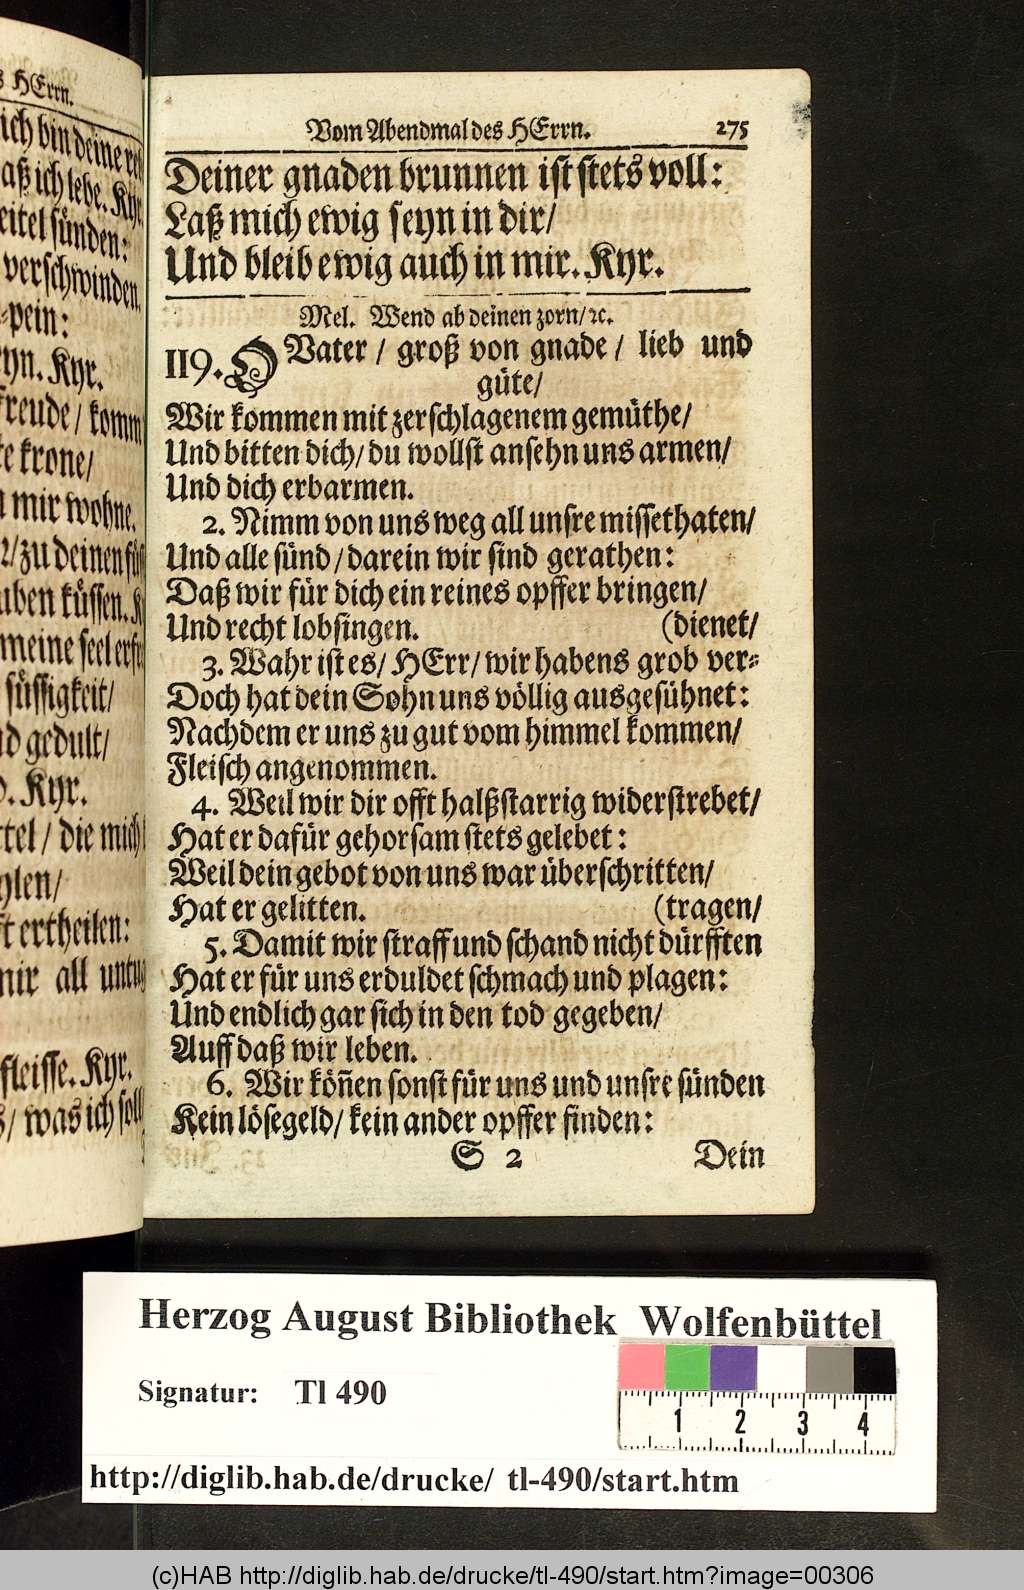 s HErrn.
ich bin deine
aß ich lebe. Kyr.
eitel sünden:
verschwinden.
-pein:
yn. Kyr.
freude/ komm
te krone/
mir wohne.
/zu deinen
uben küssen.
meine seel
süssigkeit/
nd gedult/
. Kyr.
ttel/ die mich
ylen/
ft ertheilen:
mir all
fleisse. Kyr.
s/ was ich soll
Vom Abendmal des HErrn. 275
Deiner gnaden brunnen ist stets voll:
Laß mich ewig seyn in dir/
Und bleib ewig auch in mir. Kyr.
Mel. Wend ab deinen zorn/ ꝛc.
119. O Vater / groß von gnade / lieb und
güte/
Wir kommen mit zerschlagenem gemüthe/
Und bitten dich/ du wollst ansehn uns armen/
Und dich erbarmen.
2. Nimm von uns weg all unsre missethaten/
Und alle sünd / darein wir sind gerathen:
Daß wir für dich ein reines opffer bringen/
Und recht lobsingen. (dienet/
3. Wahr ist es/ HErr/ wir habens grob ver-
Doch hat dein Sohn uns völlig ausgesühnet:
Nachdem er uns zu gut vom himmel kommen/
Fleisch angenommen.
4. Weil wir dir offt halßstarrig widerstrebet/
Hat er dafür gehorsam stets gelebet:
Weil dein gebot von uns war überschritten/
Hat er gelitten. (tragen/
5. Damit wir straff und schand nicht dürfften
Hat er für uns erduldet schmach und plagen:
Und endlich gar sich in den tod gegeben/
Auff daß wir leben.
6. Wir köñen sonst für uns und unsre sünden
Kein lösegeld/ kein ander opffer finden:
S 2 Dein
Herzog August Bibliothek Wolfenbüttel
Signatur: Tl 490
1 2 3 4
http://diglib.hab.de/drucke/ tl-490/start.htm
(c)HAB http://diglib.hab.de/drucke/tl-490/start.htm?image=00306